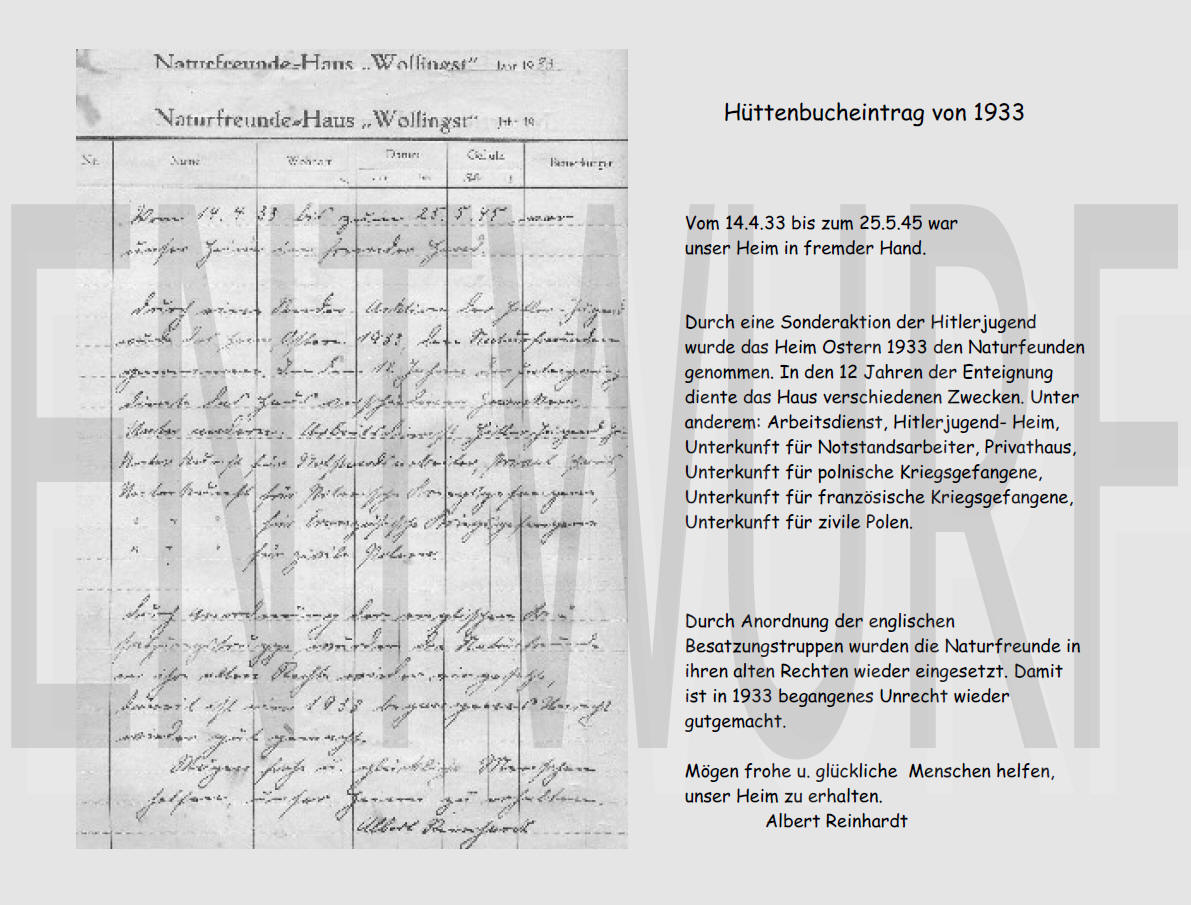 Naturfreunde-Haus „Wollingst“ Jahr 1933
Naturfreunde-Haus „Wollingst“ Jahr 19
Nr. Name Wohnort Datum Bemerkungen
Vom 14.4.33 bis zum 25.5.45 war
unser Heim in fremder Hand.
Durch eine Sonder-Aktion der Hitler-Jugend
wurde das Heim Ostern 1933 den Naturfreunden
genommen. In den 12 Jahren der Enteignung
diente das Haus verschiedenen Zwecken.
Unter anderem: Arbeitsdienst, Hitlerjugend-H.
Unterkunft für Notstandsarbeiter, Privat Haus
Unterkunft für Polnische Kriegsgefangene,
" " " für Französische Kriegsgefangene
" " " für zivile Polen.
Durch Anordnung der englischen Be-
satzungstruppe wurden die Naturfreunde
in ihr alten Rechte wieder eingesetzt,
damit ist in 1933 begangenes Unrecht
wieder gut gemacht.
Mögen frohe u. glückliche Menschen
helfen, unser Heim zu erhalten.
Albert Reinhardt
Hüttenbucheintrag von 1933
Vom 14.4.33 bis zum 25.5.45 war
unser Heim in fremder Hand.
Durch eine Sonderaktion der Hitlerjugend
wurde das Heim Ostern 1933 den Naturfeunden
genommen. In den 12 Jahren der Enteignung
diente das Haus verschiedenen Zwecken. Unter
anderem: Arbeitsdienst, Hitlerjugend- Heim,
Unterkunft für Notstandsarbeiter, Privathaus,
Unterkunft für polnische Kriegsgefangene,
Unterkunft für französische Kriegsgefangene,
Unterkunft für zivile Polen.
Durch Anordnung der englischen
Besatzungstruppen wurden die Naturfreunde in
ihren alten Rechten wieder eingesetzt. Damit
ist in 1933 begangenes Unrecht wieder
gutgemacht.
Mögen frohe u. glückliche  Menschen helfen,
unser Heim zu erhalten.
Albert Reinhardt
ENTWURF